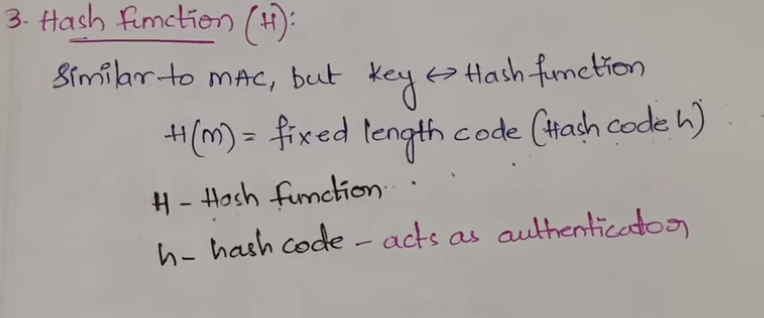 3. Hash function (H):
Similar to MAC, but key ↔ Hash function
H(M) = fixed length code (Hash code h)
H - Hash function
h - hash code - acts as authenticator